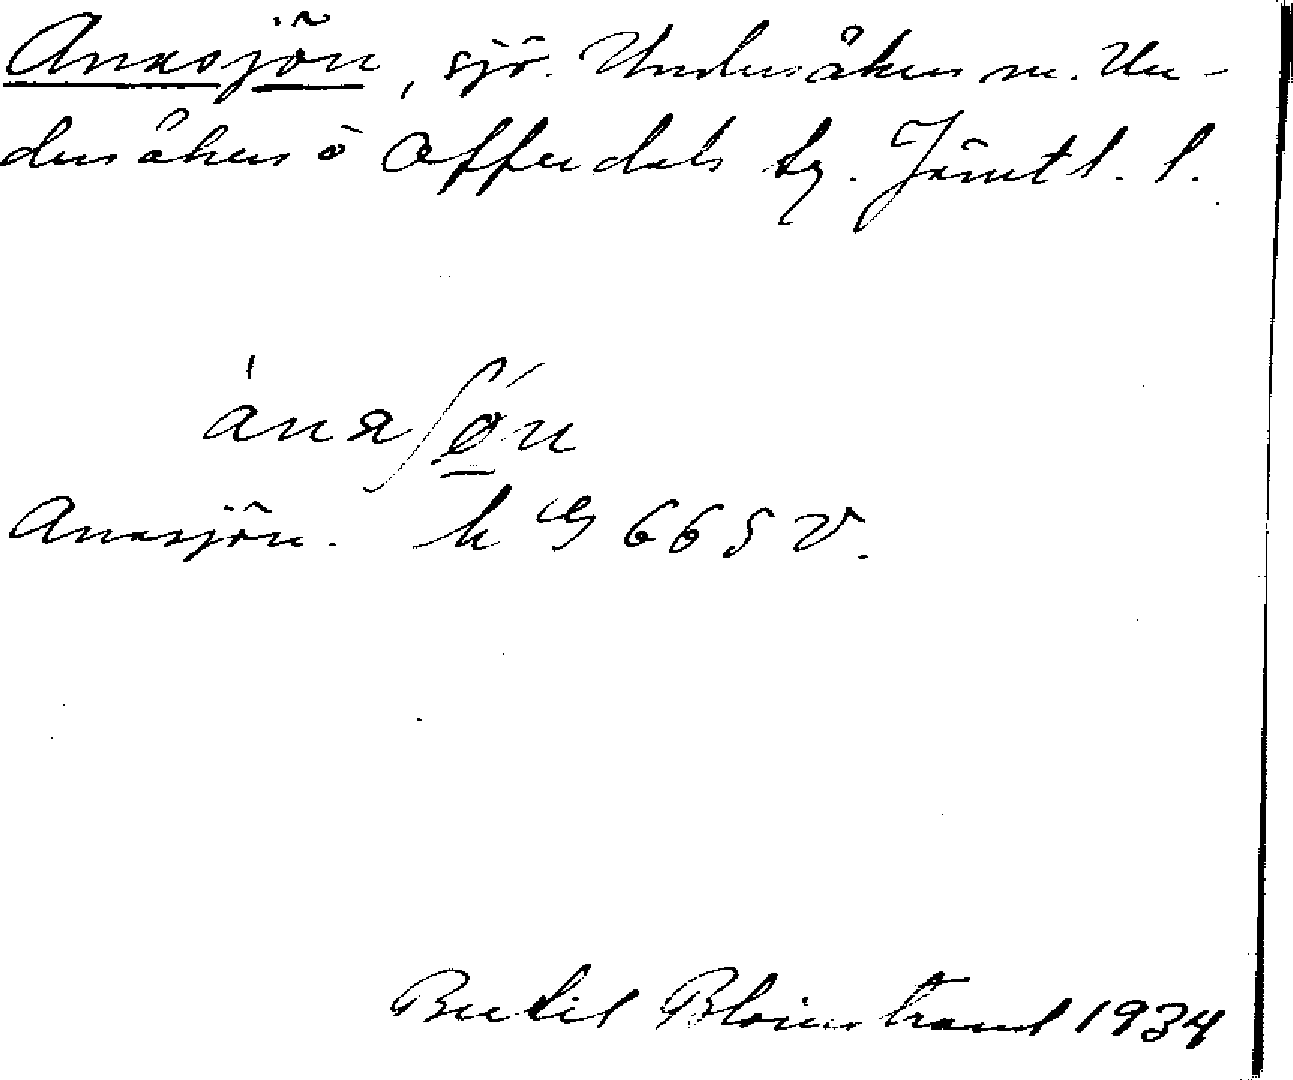 Anasjön, sjö. Undersåkers sn. Un-
dersåkers o Offerdals tg. Jämtl. l.
ánaʃǿn
Anasjön. k G 665 V.
Bertil Blomstrand 1934